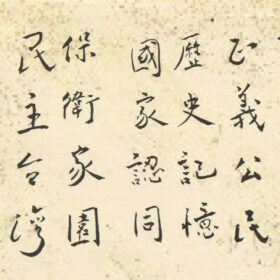 正義公民
歷史記憶
國家認同
保衛家園
民主台灣